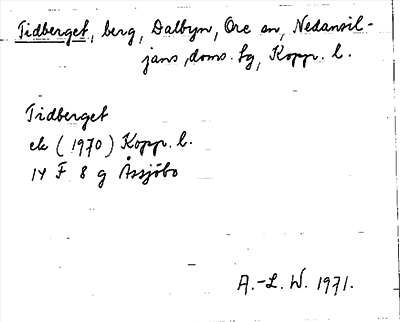 Tidberget, berg, Dalbyn, Ore sn, Nedansil-
jans doms. tg, Kopp. l.
Tidberget
ek (1970) Kopp. l.
14 F 8 g Åssjöbo
A.-L. W. 1971.